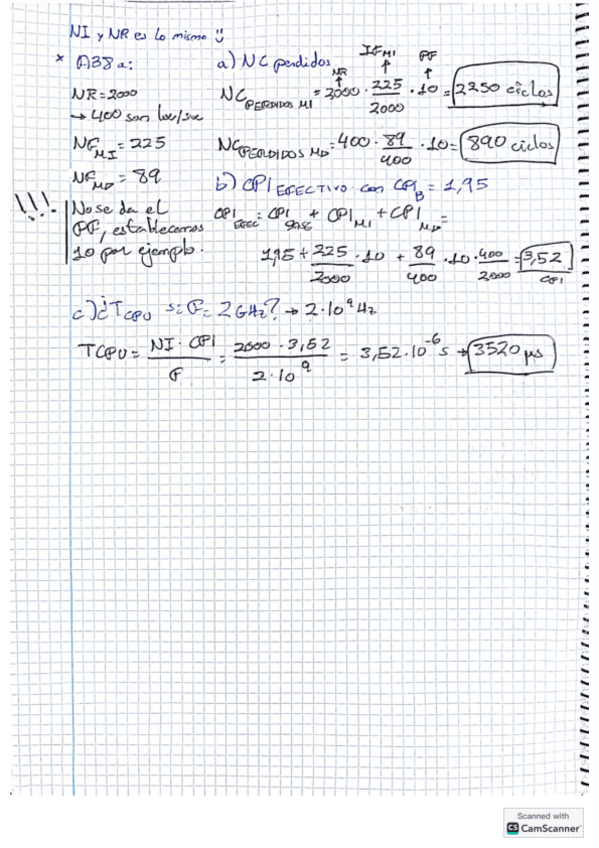 NI y NR es lo mismo
* A38a:
NR = 2000
→ 400 son loc/sw
NF_MI = 225
NF_MD = 89
!!! No se da el
PF, establecemos
10 por ejemplo.
a) NC perdidos
NR IF_MI PF
NC_PERDIDOS MI = 2000 · 225/2000 · 10 = 2250 ciclos
NC_PERDIDOS MD = 400 · 89/400 · 10 = 890 ciclos
b) CPI EFECTIVO con CPI_B = 1,95
CPI_EFEC = CPI_BASE + CPI_MI + CPI_MD =
1,95 + 225/2000 · 10 + 89/400 · 10 · 400/2000 = 3,52 CPI
c) ¿T_CPU si F = 2 GHz? → 2·10^9 Hz
TCPU = NI · CPI / F = 2000 · 3,52 / 2·10^9 = 3,52·10^-6 s → 3520 µs
Scanned with
CS CamScanner